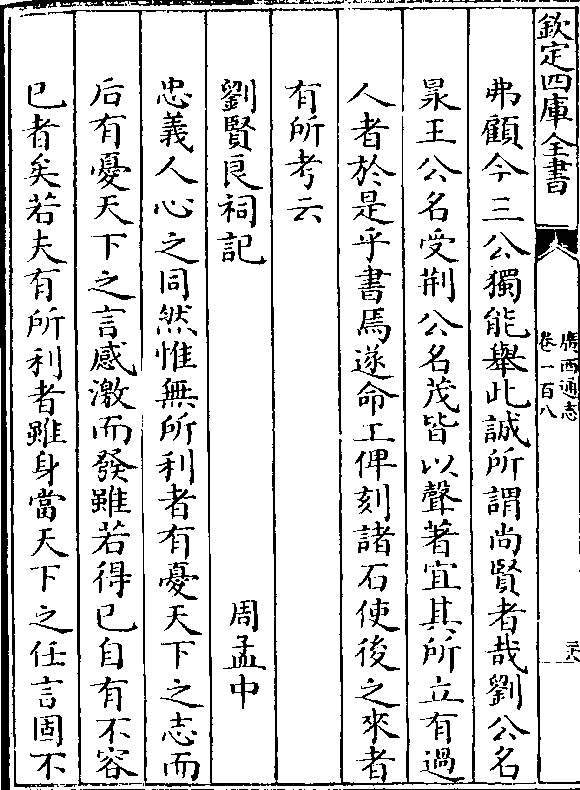 欽定四庫全書
廣西通志
卷一百八
弗顧今三公獨能舉此誠所謂尚賢者哉劉公名
杲王公名受荆公名茂皆以聲著宜其所立有過
人者於是乎書焉遂命工俾刻諸石使後之來者
有所考云
劉賢良祠記
周孟中
忠義人心之同然惟無所利者有憂天下之志而
后有憂天下之言感激而發雖若得已自有不容
已者矣若夫有所利者雖身當天下之任言固不